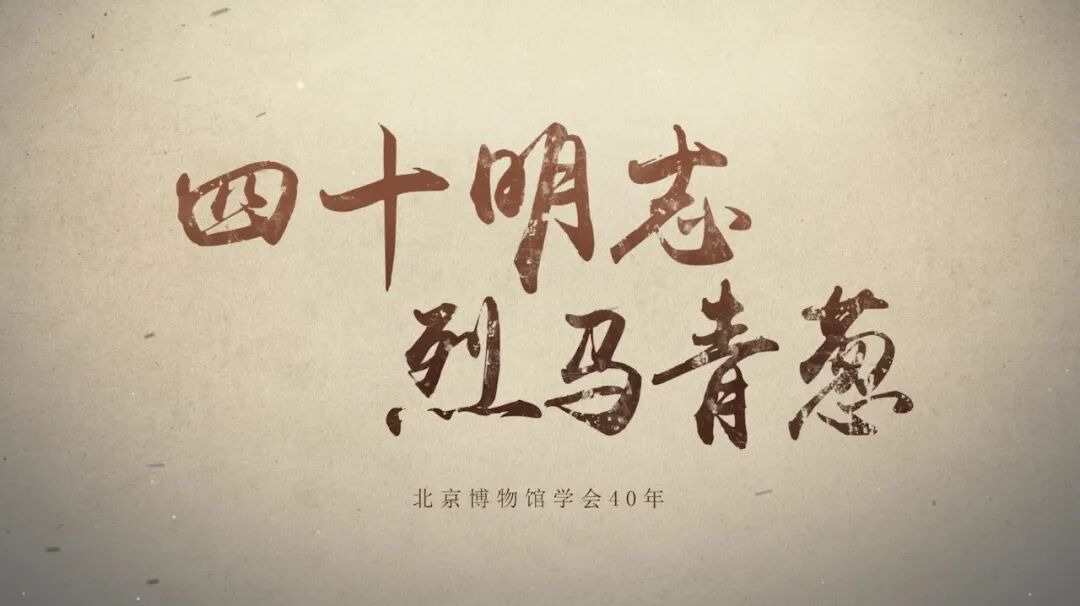 四十明志
烈马青葱
北京博物馆学会40年